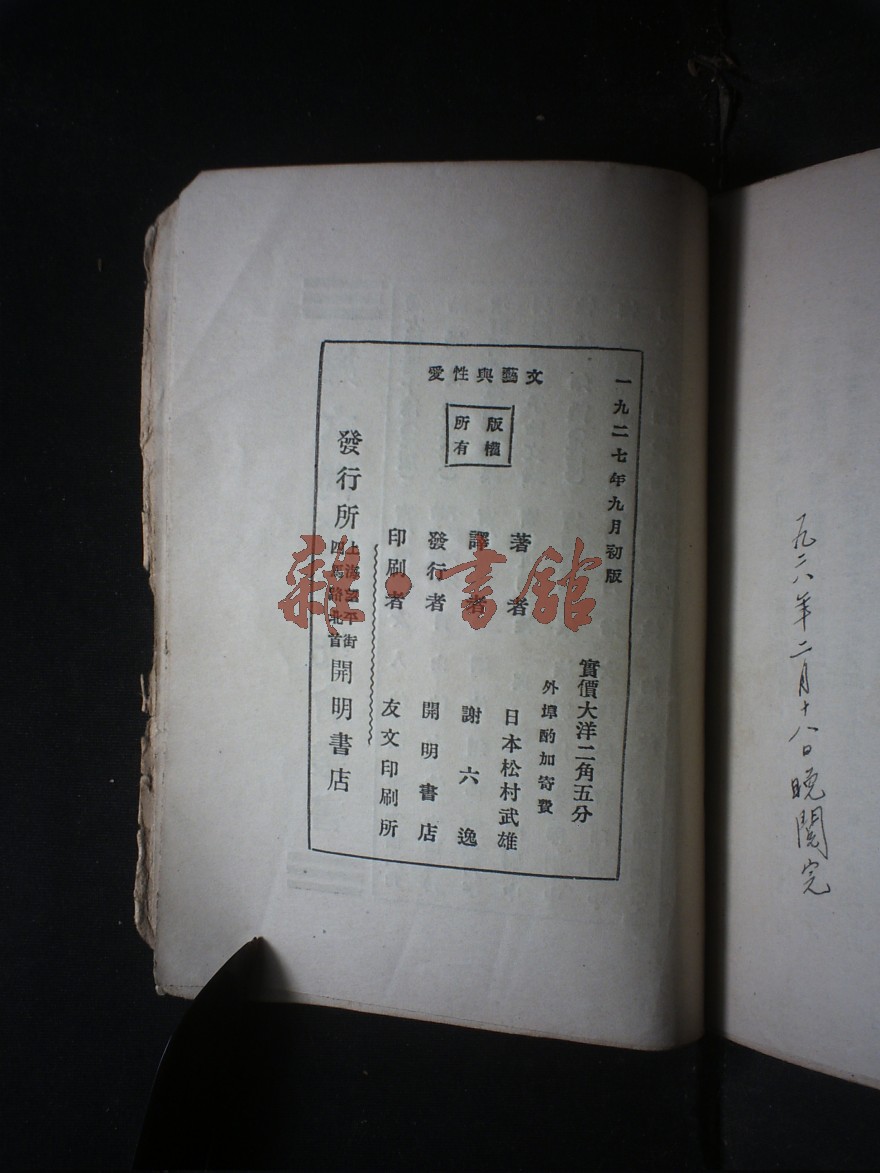 一九二八年二月十八日晚閱完
一九二七年九月初版
文藝與性愛
版權
所有
實價大洋二角五分
外埠酌加寄費
著者 日本松村武雄
譯者 謝六逸
發行者 開明書店
印刷者 友文印刷所
發行所 上海望平街
四馬路北首 開明書店
雜·書館